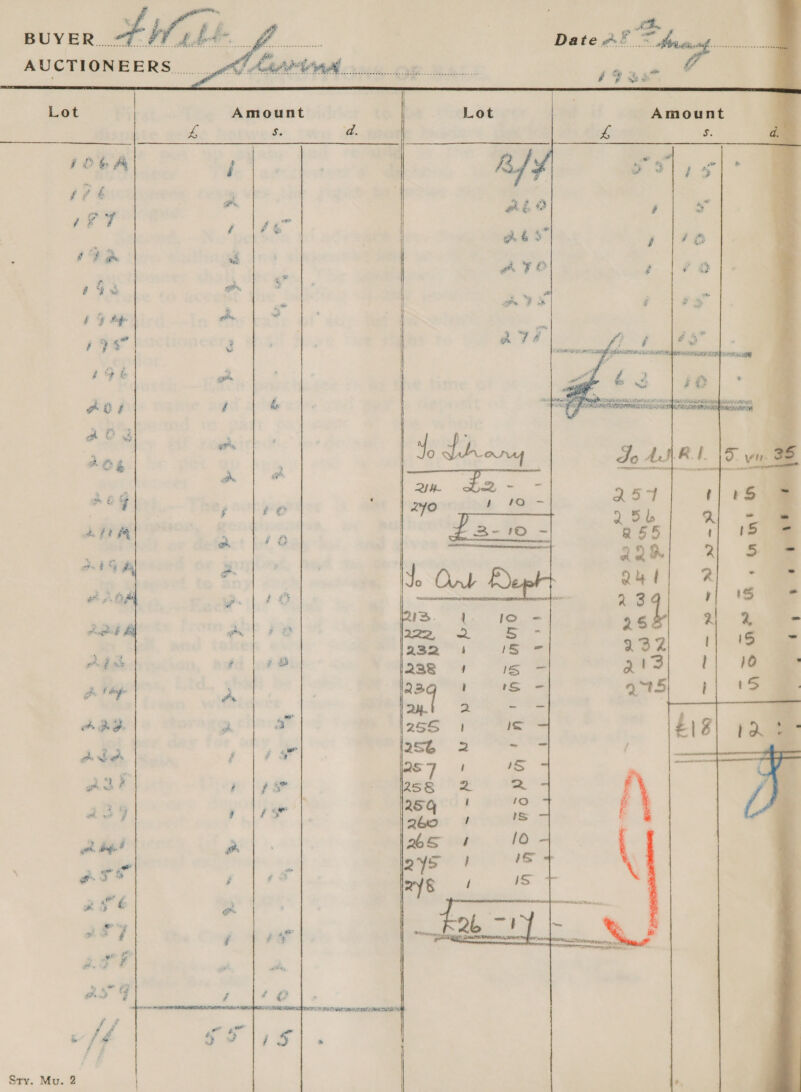 BUYER Date 28th May
AUCTIONEERS Stevens 1935
Lot Amount
£ s. d.
106A 1
176 2
187 1 15
192 3
193 2 5
194 2 5
195 3
196 2
201 1 6
203 2
206 2 2
209 1 10
211A 2 10
219A 2
220A 2 10
221A 2 10
213 1 10
214 2
222 2 5
232 1 15
238 1 15
239 1 15
241 2
255 1 15
256 2
257 1 15
258 2 2
259 1 10
c/f 55 15 .
Lot Amount
£ s. d.
B/f 55 15 .
260 1 5
265 1 10
270 1 10
275 1 15
278 1 15 -
£ 63 10 .
To Library
214 £2 - -
270 1 10 -
£3-10 -
To Art Dept
213. 1. 10 -
222 2 5 -
232 1 15 -
238 1 15 -
239 1 15 -
241 2 - -
255 1 15 -
256 2 - -
257 1 15 -
258 2 2 -
259 1 10 -
260 1 15 -
265 1 10 -
275 1 15 -
278 1 15 -
£26 - 17 -
R.I. 5. VII. 35
257 1 15 -
256 2 - -
255 1 15 -
222 2 5 -
241 2 - -
239 1 15 -
258 2 2 -
232 1 15 -
213 1 10 -
275 1 15 -
£18 12 : -
Sty. Mu. 2